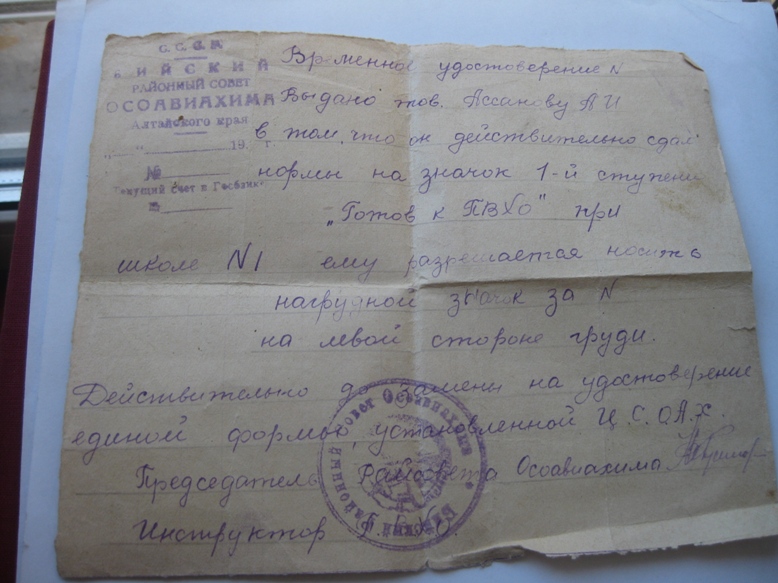 С.С.С.Р.
БИЙСКИЙ
РАЙОННЫЙ СОВЕТ
ОСОАВИАХИМА
Алтайского края
"___" ________ 19__ г.
№
Текущий счет в Госбанке
№
Временное удостоверение N
Выдано тов. Ассанову А И
в том, что он действительно сдал
нормы на значок 1-й ступени
„Готов к ПВХО" при
школе N1 ему разрешается носить
нагрудной значок за N
на левой стороне груди.
Действительно до замены на удостоверение
единой формы, установленной Ц.С.О.А.Х.
Председатель Райсовета Осоавиахима
Инструктор
Бийский Районный Совет Осоавиахима